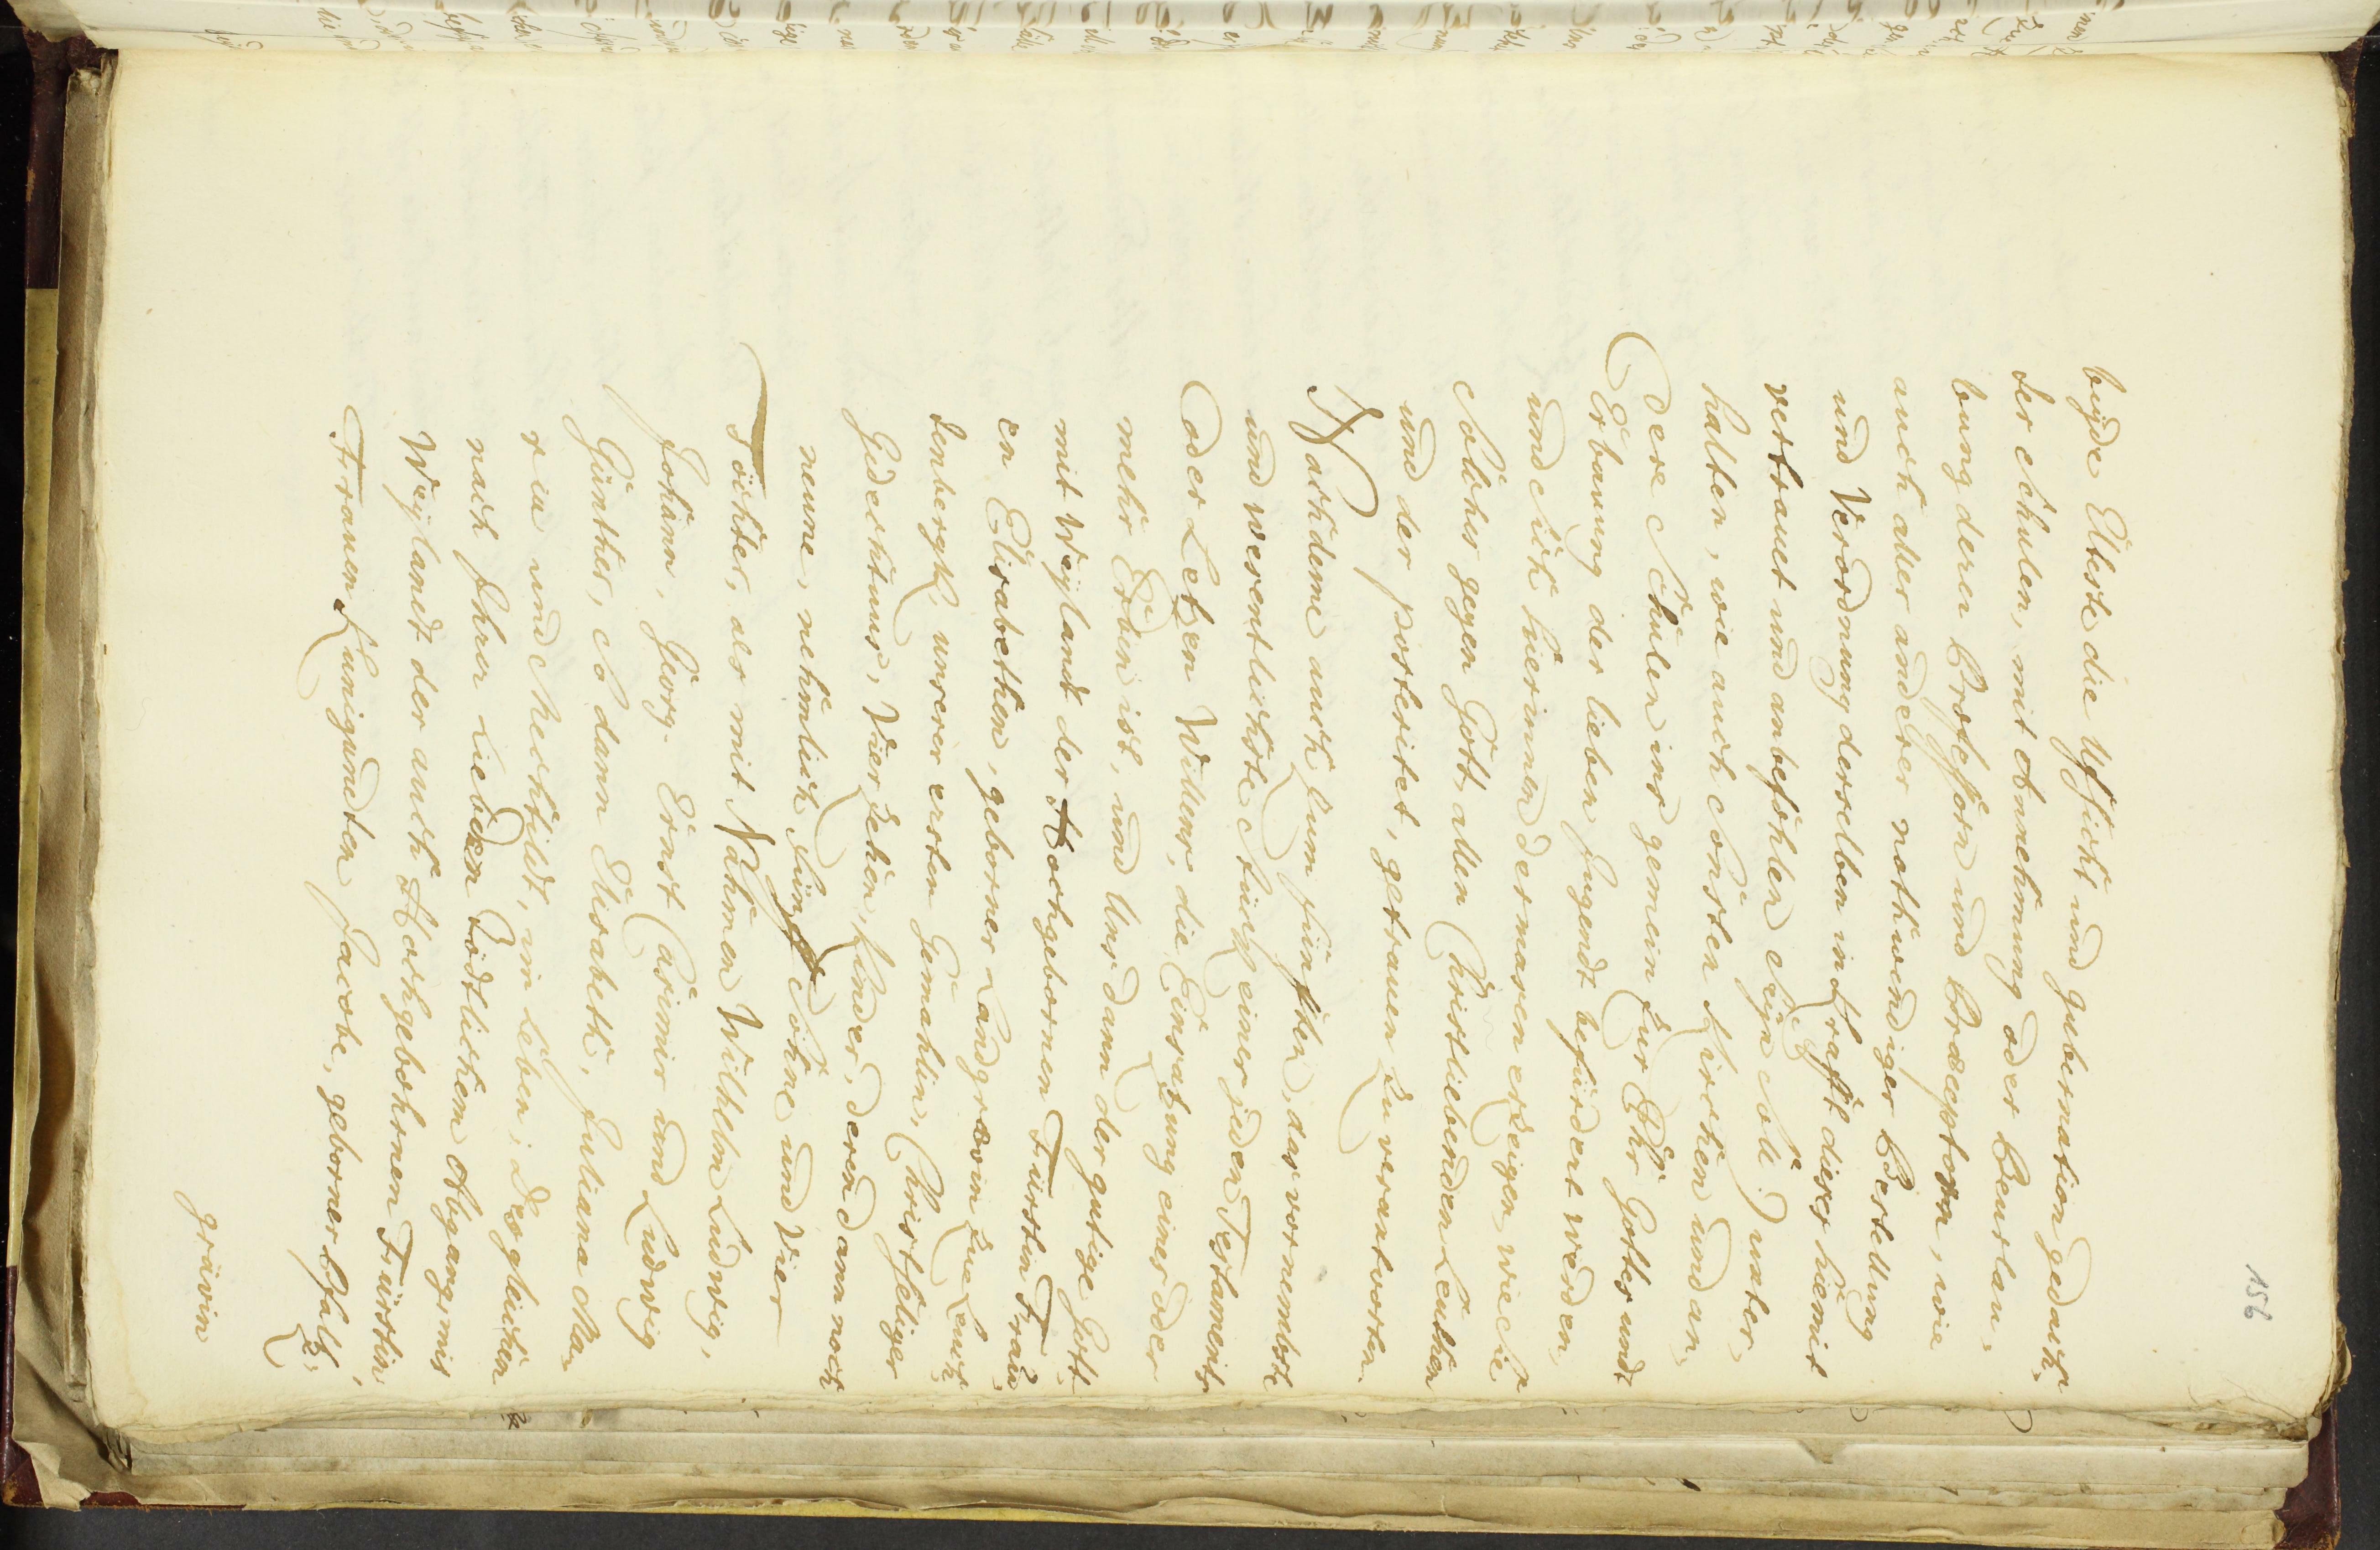 156
beyde Elteste die Uffsicht und gubernation gedach-
ter Schulen, mit Annehmung oder Beurlau-
bung deren Professorn und Præceptorn, wie
auch aller anderer nothwendiger Bestellung
und Verordnung derselben in Krafft dieses hiemit
vertrauet und anbefohlen seyn soll) unter-
halten, wie auch sonsten Kirchen und an-
dere Schulen ins gemein zur Ehr Gottes undt
Erbauung der lieben Jugendt befürdert werden,
und sich hierinnen dermasen erzeigen, wie sie
solches gegen Gott, allen Christliebenden Leuthen
und der posteritet, getrauen zu verantworten.
Nachdeme auch zum fünfften, das vornembste
und wesentlichste Stück eines jeden Testaments
oder Letzen Willens, die Einsatzung eines oder
mehr Erben ist, und Uns dann der gutige Gott
mit Weylandt der Hochgebornen Fürstin Frau-
en Elisabethen, geborner Landgrævin zue Leuch-
tenbergk, unserer ersten Gemahlin, Christseliger
Gedechtnus, Vierzehen Kinder, deren dann noch
neune, nehmlich fünff Söhne und Vier
Töchter, als mit Nahmen Wilhelm Ludwig,
Johann, Georg. Ernst Casimir und Ludwig
Günther, So dann Elisabeth, Juliana Ma-
ria und Mechtildt, im leben; Desgleichen
nach Ihrer Liebden Tödtlichem Abgang, mit
Weylandt der auch Hochgebohrnen Fürstin,
Frauen Kunigundten Jacobe, geborner Pfaltz-
grävin